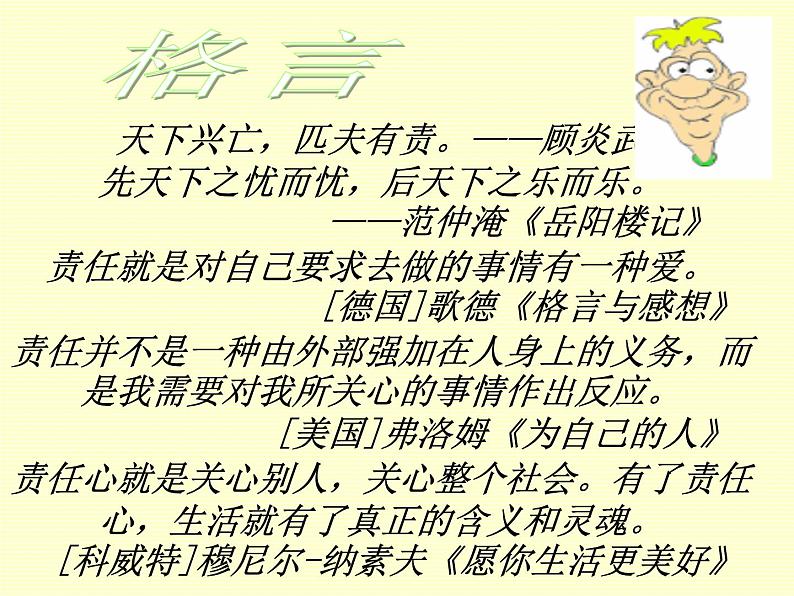 格言
天下兴亡，匹夫有责。——顾炎武
先天下之忧而忧，后天下之乐而乐。
——范仲淹《岳阳楼记》
责任就是对自己要求去做的事情有一种爱。
[德国]歌德《格言与感想》
责任并不是一种由外部强加在人身上的义务，而
是我需要对我所关心的事情作出反应。
[美国]弗洛姆《为自己的人》
责任心就是关心别人，关心整个社会。有了责任
心，生活就有了真正的含义和灵魂。
[科威特]穆尼尔-纳素夫《愿你生活更美好》